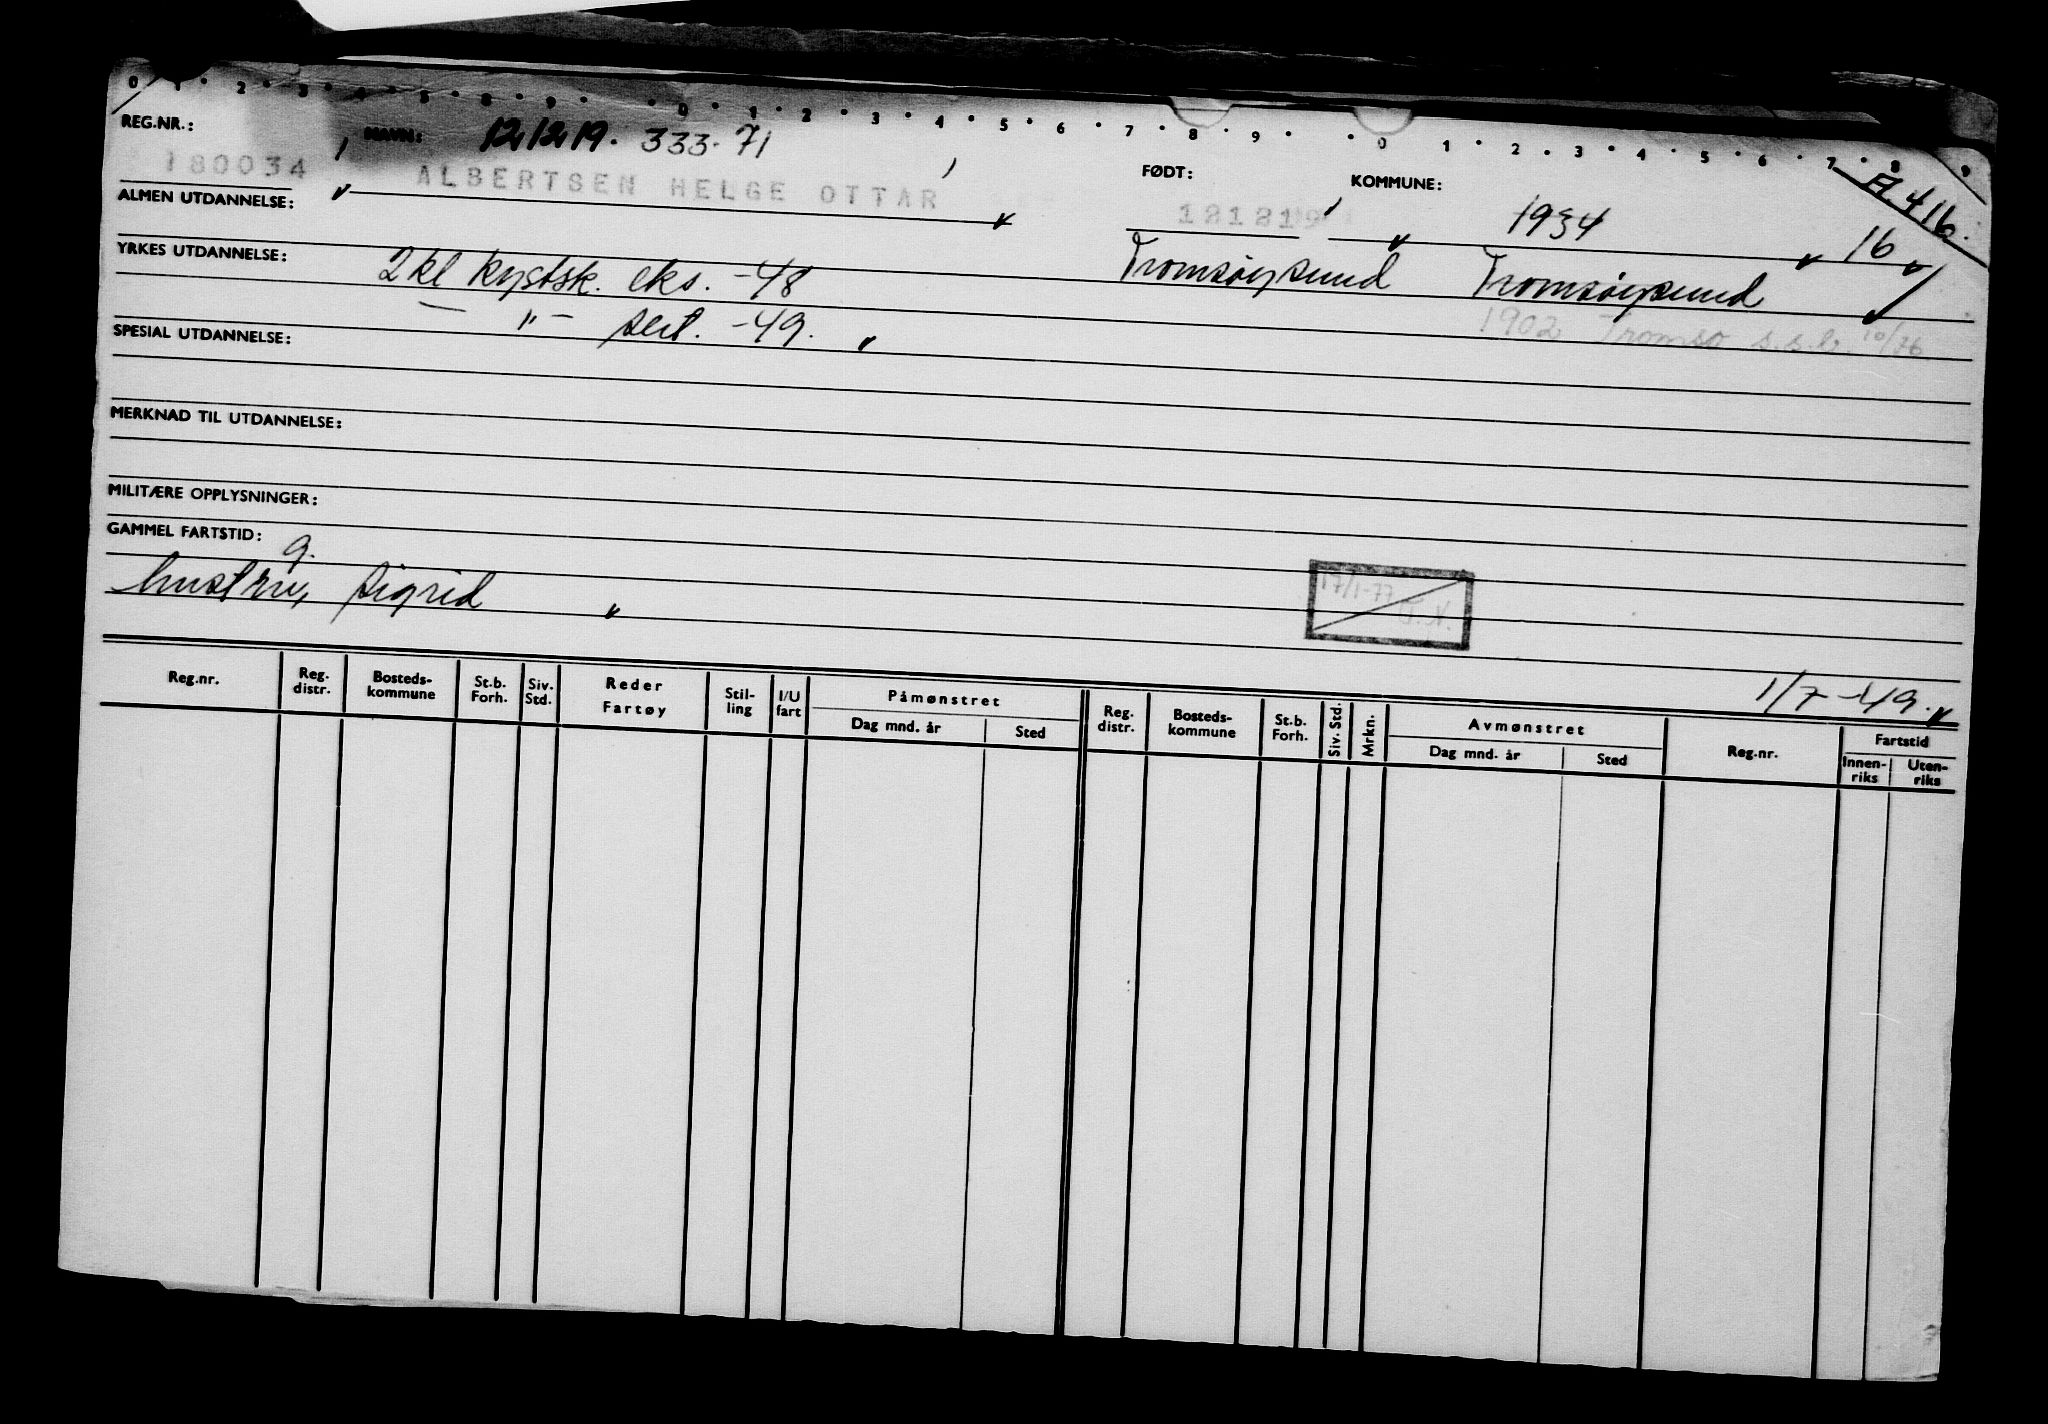 0 1 2 3 4 5 8 9 0 1 2 3 4 5 6 7 8 9 0 1 2 3 4 5 6 7 8 9
REG.NR.: NAVN: 121219. 333.71 FØDT: KOMMUNE: A 416.
180034 ALBERTSEN HELGE OTTAR 121219 1934 16
ALMEN UTDANNELSE: Tromsøysund Tromsøysund
YRKES UTDANNELSE: 2kl kystsk. eks. -48
— " — sert. -49. 1902 Tromsø s.s.b. 10/76
SPESIAL UTDANNELSE:
MERKNAD TIL UTDANNELSE:
MILITÆRE OPPLYSNINGER:
GAMMEL FARTSTID:
g.
hustru, Sigrid
17/1-77 T.N.
1/7-49.
Reg.nr. Reg. distr. Bosteds-kommune St.b. Forh. Siv. Std. Reder Fartøy Stil-ling I/U fart Påmønstret Dag mnd. år Sted Reg. distr. Bosteds-kommune St.b. Forh. Siv. Std. Mrkn. Avmønstret Dag mnd. år Sted Reg.nr. Fartstid Innen-riks Uten-riks